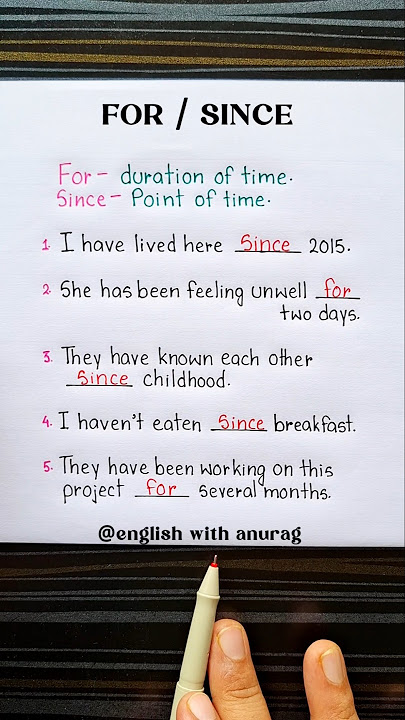 FOR / SINCE
For - duration of time.
Since - Point of time.
1. I have lived here since 2015.
2. She has been feeling unwell for
two days.
3. They have known each other
since childhood.
4. I haven't eaten since breakfast.
5. They have been working on this
project for several months.
@english with anurag